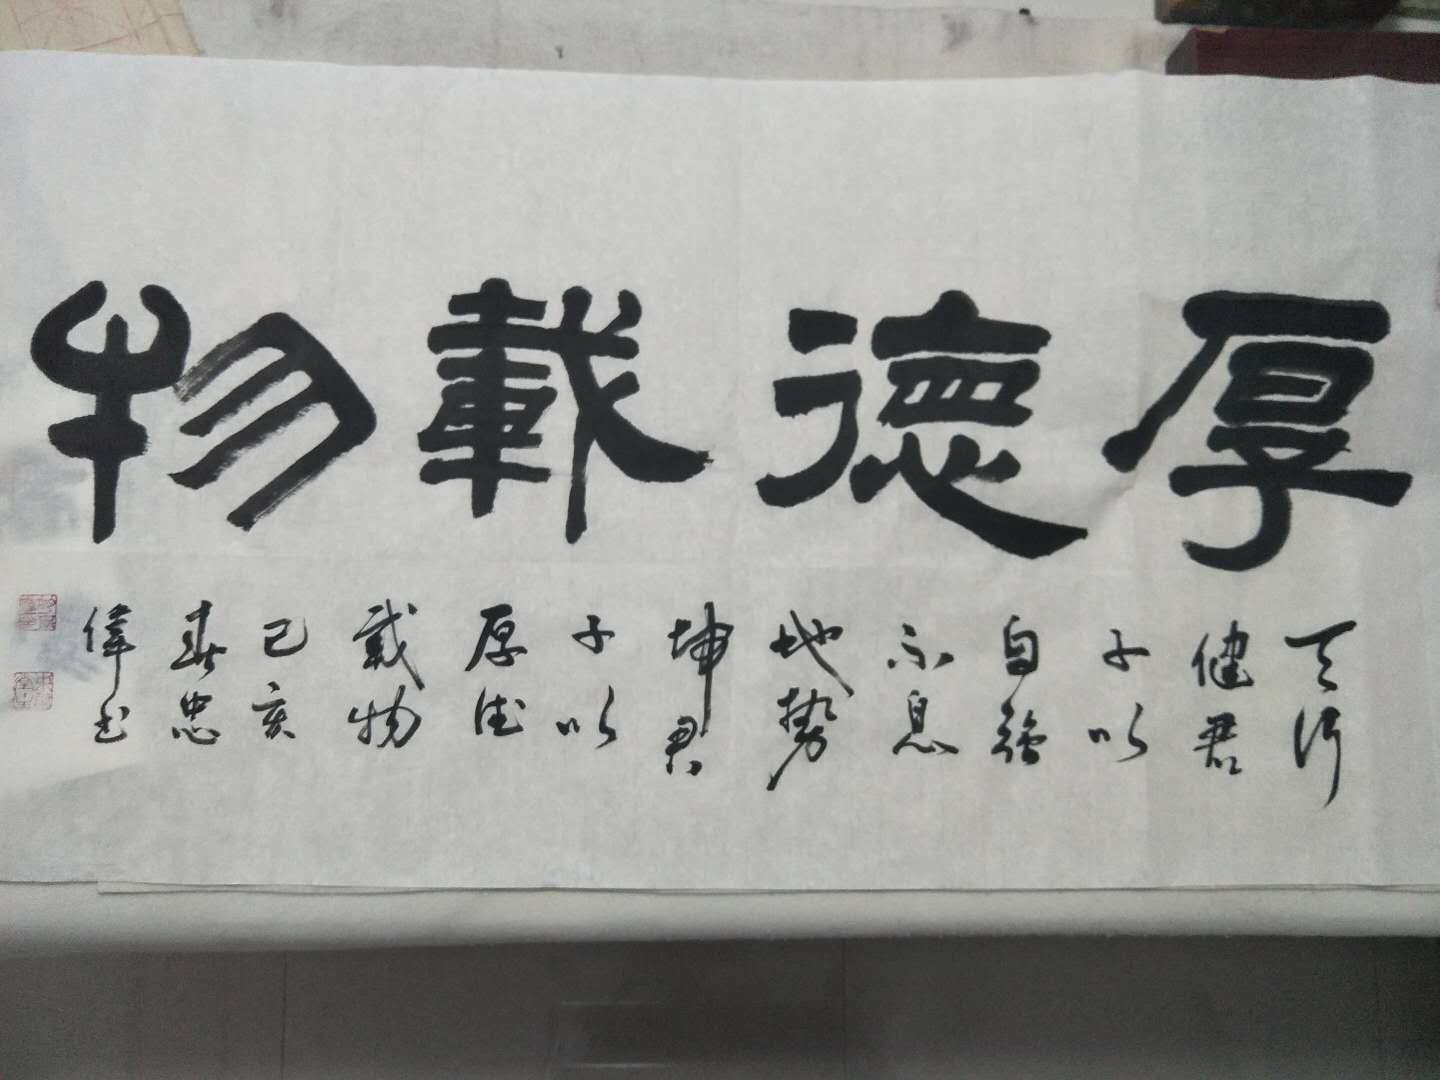 厚德载物
天行
健君
子以
自强
不息
地势
坤君
子以
厚德
载物
己亥
春忠
偉书